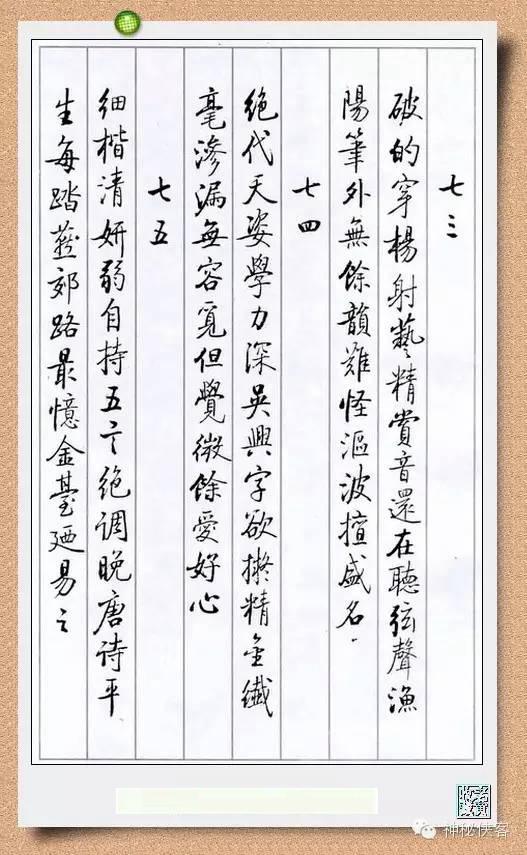 七三
破的穿楊射藝精賞音還在聽弦聲漁
陽筆外無餘韻難怪漚波擅盛名
七四
絕代天姿學力深吳興字欲擬精金纖
毫滲漏無容覓但覺微餘愛好心
七五
細楷清妍弱自持五言絕調晚唐诗平
生每踏燕郊路最憶金臺廼易之
神秘侠客